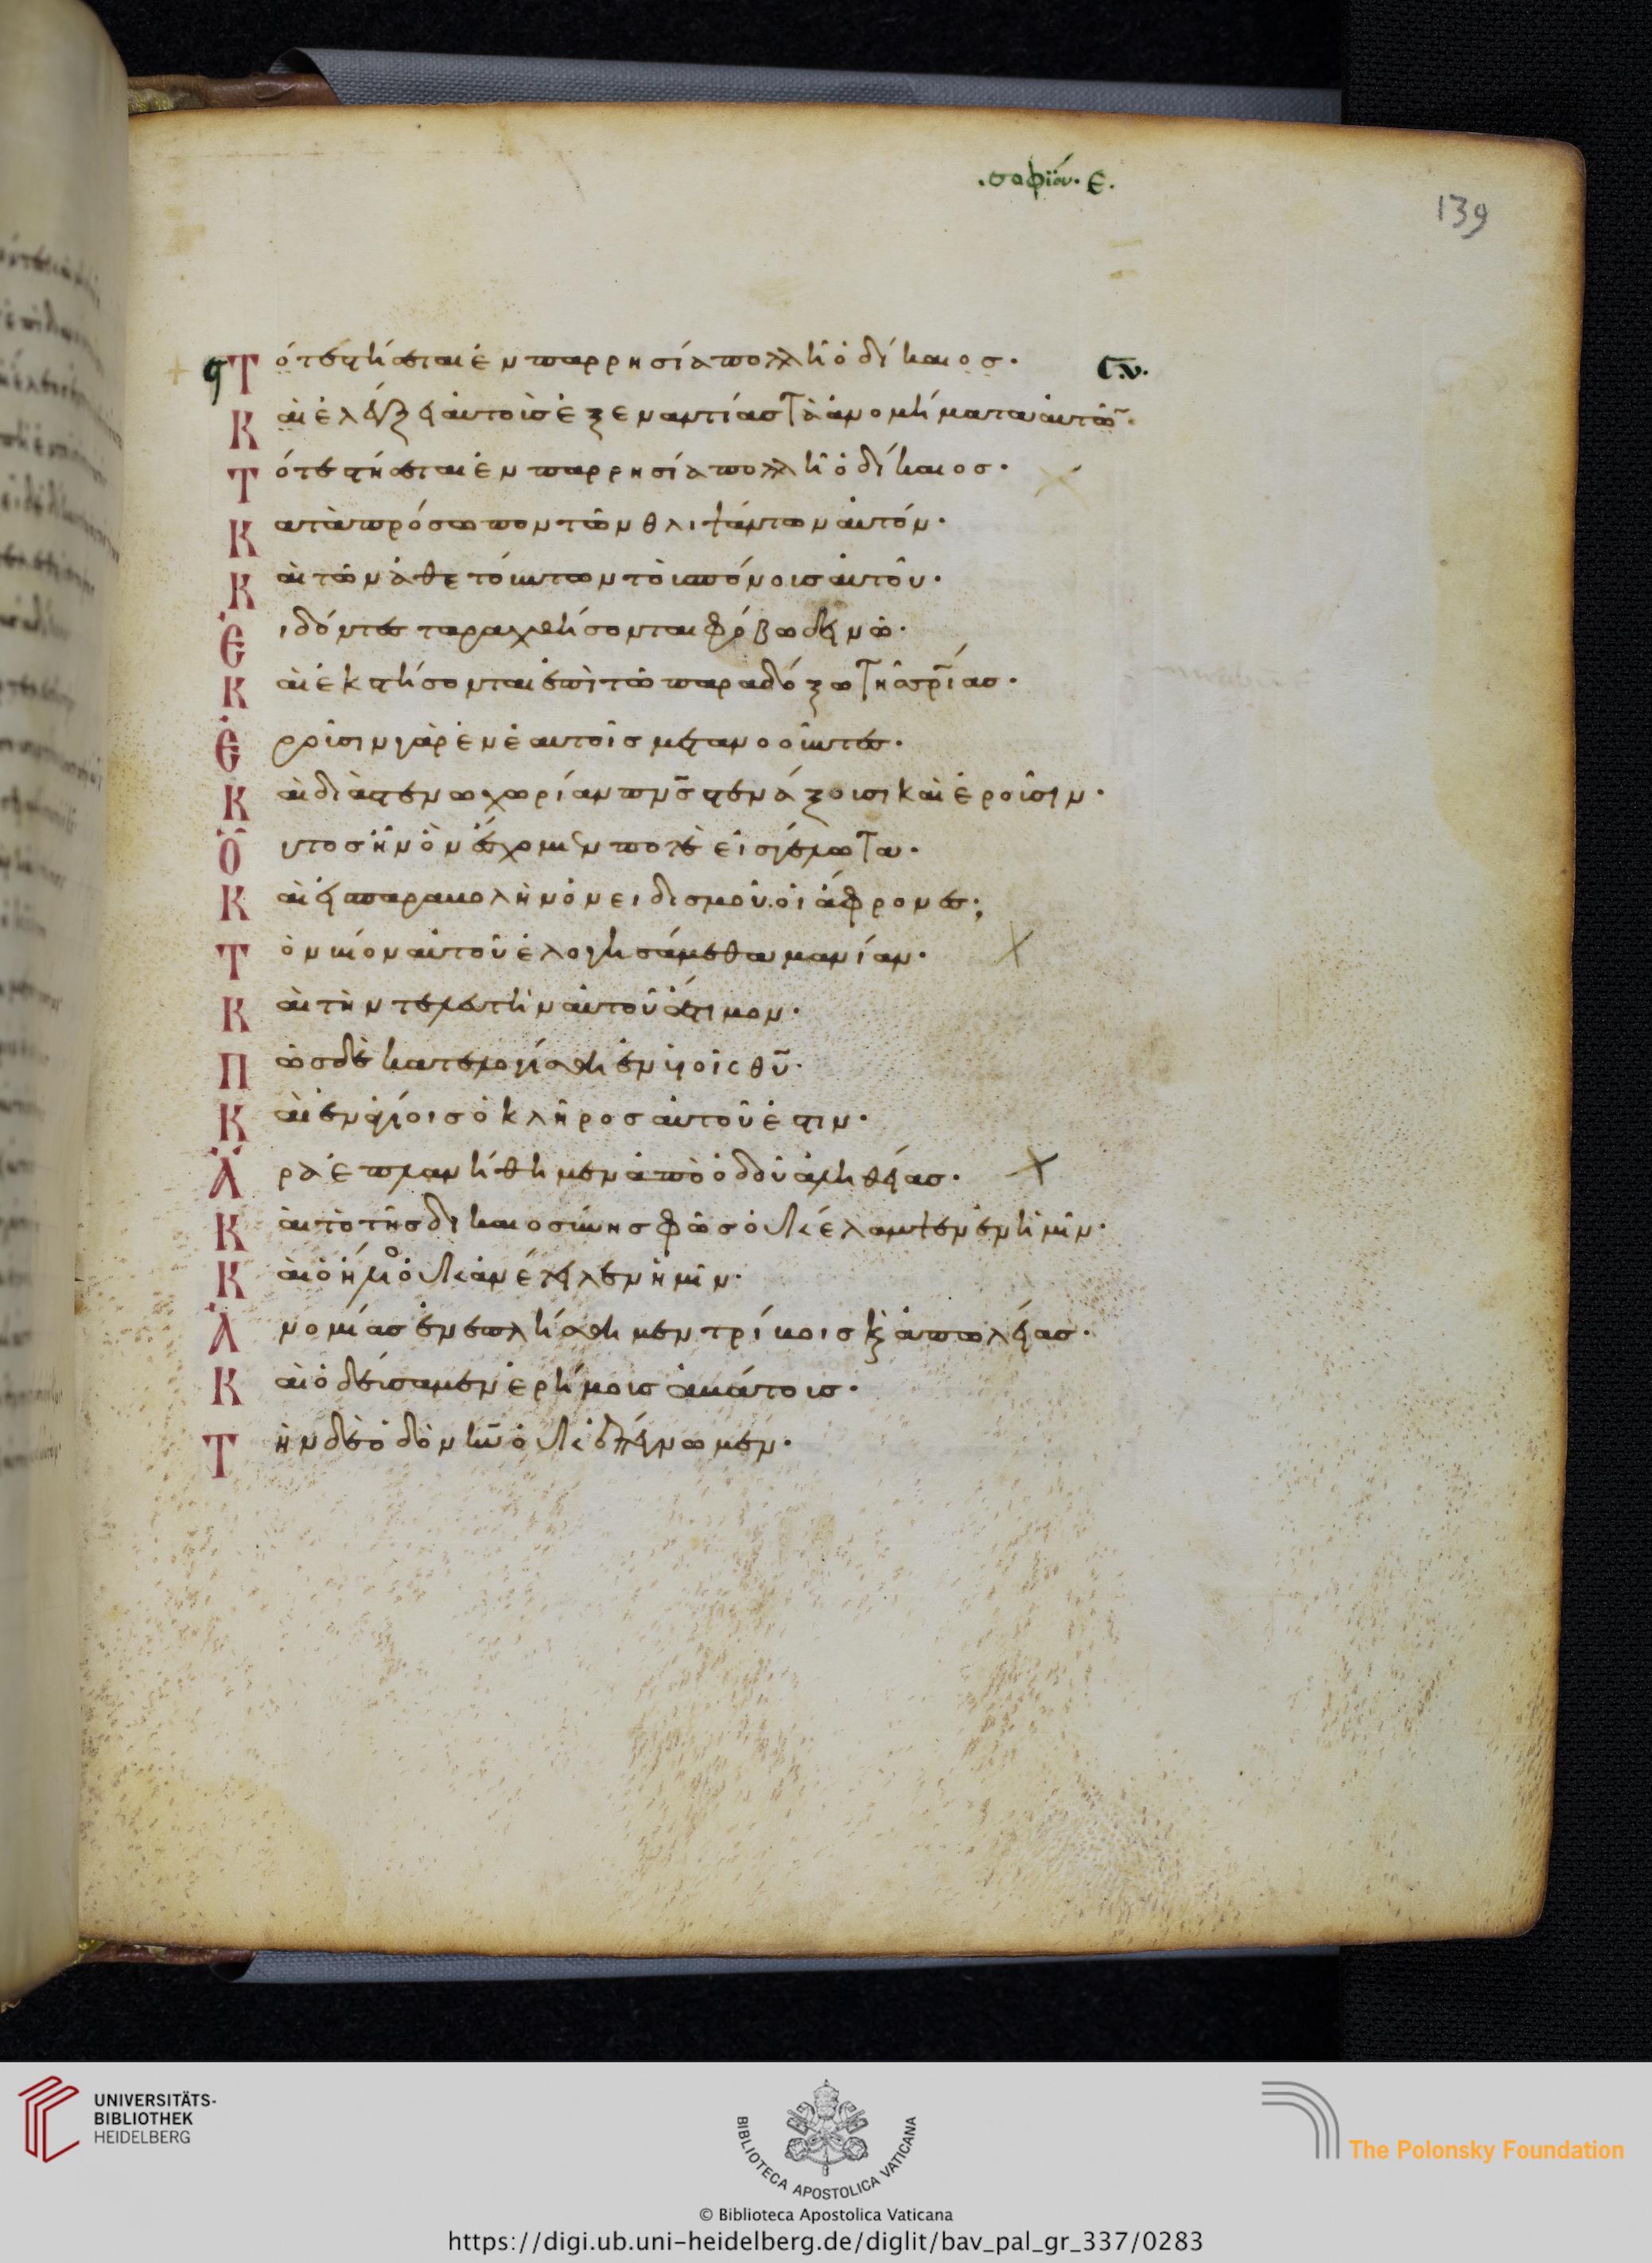 .σοφίων. ε.
139
Τότε στήσεται ἐν παρρησία πολλῆ ὁ δίκαιος.
Καὶ ἐλέγξει αὐτοῖς ἐξεναντίας τὰ ἀνομήματα αὐτῶ̅.
Τότε στήσεται ἐν παρρησία πολλῆ ὁ δίκαιος.
Κατὰ πρόσωπον τῶν θλιψάντων αὐτόν.
Καὶ τῶν ἀθετούντων τοὺς πόνους αὐτοῦ.
Ἰδόντες ταραχθήσονται φόβω δεινῶ.
Καὶ ἐκστήσονται ἐπὶ τῶ παραδόξω τῆς σρ̅ίας.
Ἐροῦσιν γὰρ ἐν ἑαυτοῖς μετανοοῦντες.
Καὶ διὰ στενοχωρίαν πν̅ς στενάξουσι καὶ ἐροῦσιν.
Οὗτος ἦν ὃν ἔσχομέν ποτε εἰς γέλωτα.
Καὶ εἰς παραβολὴν ὀνειδισμοῦ. οἱ ἄφρονες;
Τὸν βίον αὐτοῦ ἐλογησάμεθα μανίαν.
Καὶ τὴν τελευτὴν αὐτοῦ ἄτιμον.
Πῶς δὲ κατελογίσθη ἐν υἱοῖς θυ̅.
Καὶ ἐν ἁγίοις ὁ κλῆρος αὐτοῦ ἐστιν.
Ἄρα ἐπλανήθημεν ἀπὸ ὁδοῦ ἀληθείας.
Καὶ τὸ τῆς δικαιοσύνης φῶς οὐκ ἔλαμψεν ἐν ἡμῖν.
Καὶ ὁ ἥλιος οὐκ ἀνέτειλεν ἡμῖν.
Ἀνομίας ἐνεπλήσθημεν τρίβοις κ̀ ἀπωλείας.
Καὶ ὁδεύσαμεν ἐρήμους ἀβάτους.
Τὴν δὲ ὁδὸν κυ̅ οὐκ ἐπέγνωμεν.
UNIVERSITÄTS-
BIBLIOTHEK
HEIDELBERG
BIBLIOTECA APOSTOLICA VATICANA
The Polonsky Foundation
© Biblioteca Apostolica Vaticana
https://digi.ub.uni-heidelberg.de/diglit/bav_pal_gr_337/0283